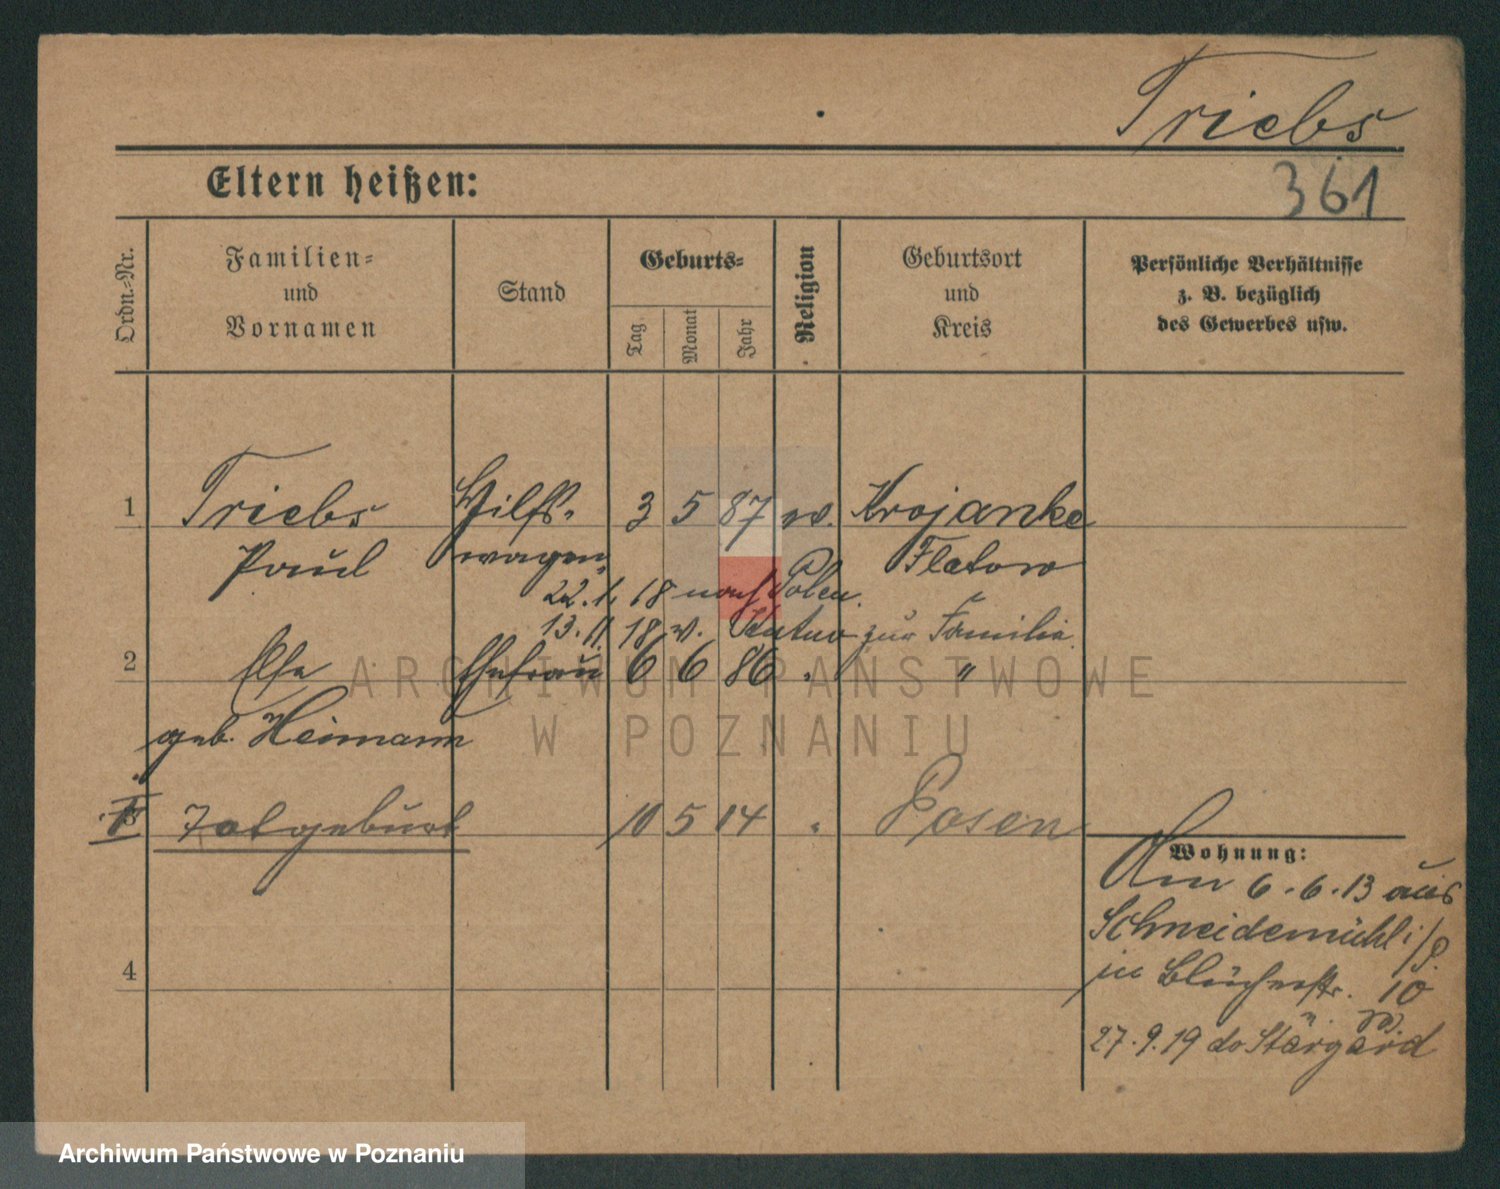 Triebs
Eltern heißen:
361
Ordn.-Nr.
Familien-
und
Vornamen
Stand
Geburts-
Tag
Monat
Jahr
Religion
Geburtsort
und
Kreis
Persönliche Verhältnisse
z. B. bezüglich
des Gewerbes usw.
1 Triebs Hilfs- 3 5 87 Krojanke
Paul wagen Flatow
22.1.18 nach Polen.
13.11.18 v. zur Familie
2 Else Ehefrau 6 6 86 "
geb. Heimann
3 Totgeburt 10 5 14 Posen
Wohnung:
Am 6.6.13 aus
Schneidemühl i/P.
in Blücherstr. 10
27.9.19 do Stargard
4
ARCHIWUM PAŃSTWOWE
W POZNANIU
Archiwum Państwowe w Poznaniu